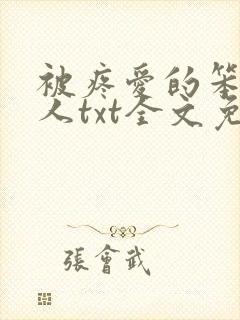 被疼愛的笨
人txt全文免
張會武